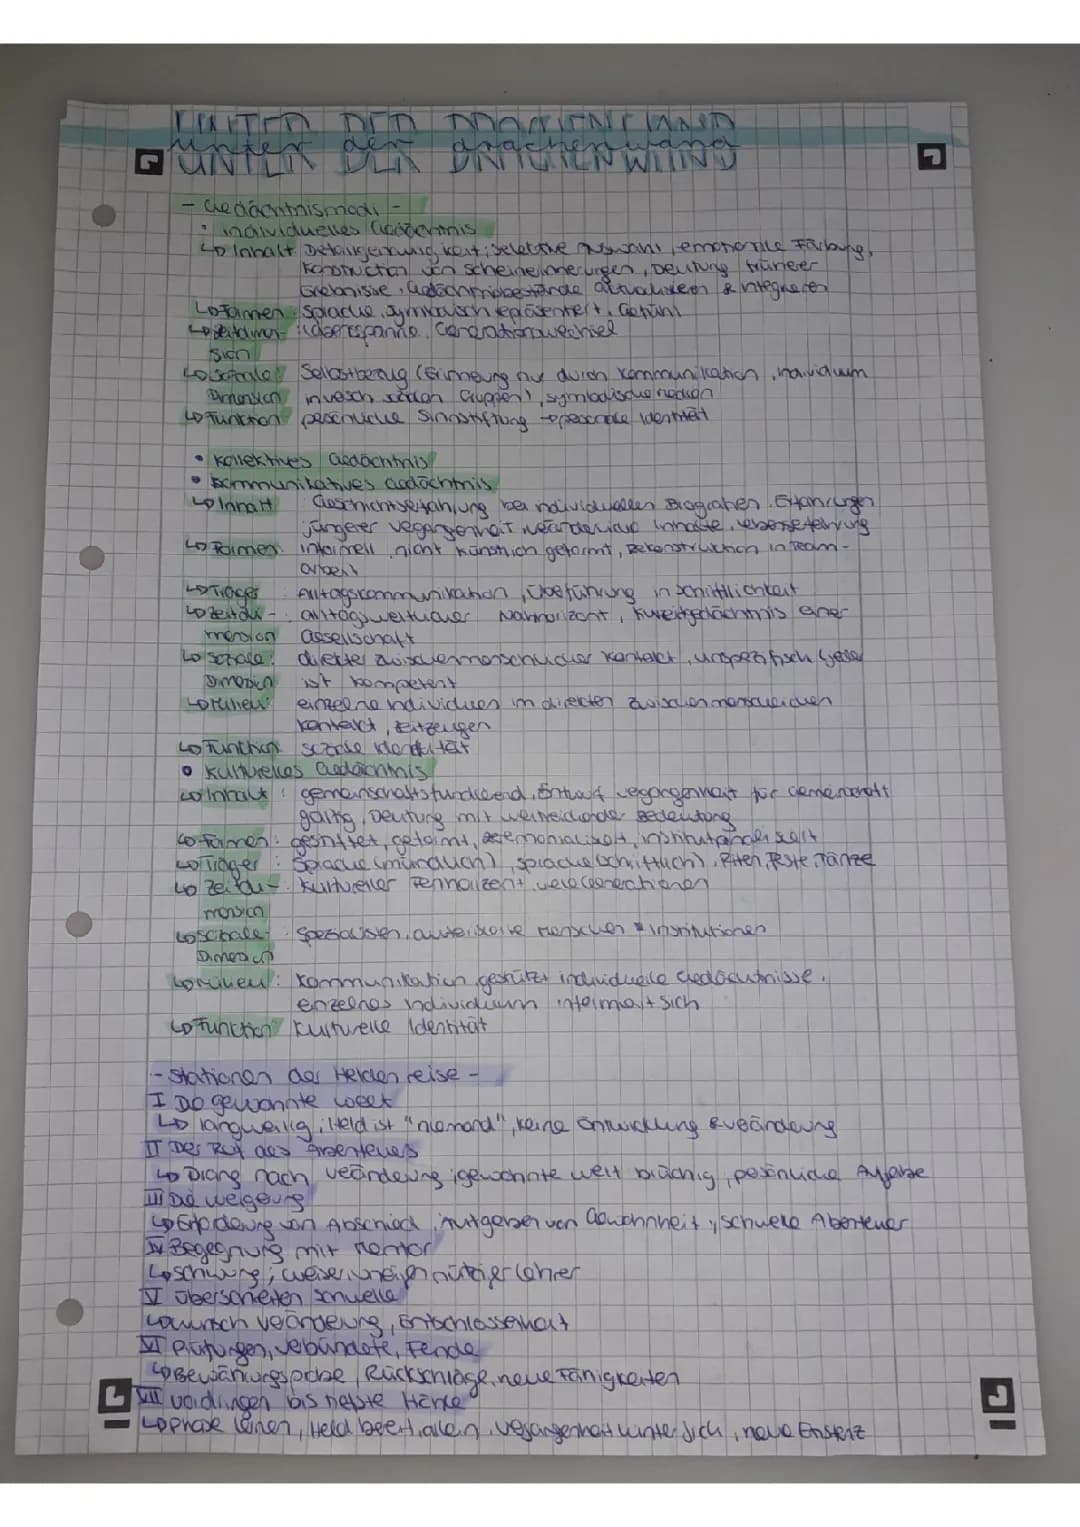 UNTER DER DRACHENWAND
unter der drachenwand
- Gedächtnismodi -
• individuelles Gedächtnis
↳ Inhalt Detailgenauigkeit, selektive Auswahl, emotionale Färbung,
Konstruktion von Scheinerinnerungen, Deutung früherer
Erlebnisse, Gedächtnisbestände aktualisieren & integrieren
↳ Formen: Sprache, symbolisch repräsentiert, Gefühl
↳ Zeitdimen- : Lebensspanne, Generationswechsel
sion
↳ soziale Selbstbezug (Erinnerung nur durch Kommunikation, individuum
Dimension in versch. sozialen Gruppen), symbolische medien
↳ Funktion persönliche Sinnstiftung → personale Identität
• kollektives Gedächtnis
• kommunikatives Gedächtnis
↳ Inhalt Geschichtserfahrung bei individuellen Biografien. Erfahrungen
jüngerer vegangenheit, veränderliche Inhalte,
↳ Formen: informell, nicht künstlich geformt, Rekonstruktion in Team-
arbeit
↳ Träger : Alltagskommunikation, Überführung in Schriftlichkeit
↳ Zeitdi- : alltagsweltlicher Nahhorizont, Kurzeitgedächtnis einer
mension Gesellschaft
↳ soziale: direkter zwischenmenschlicher Kontakt, unspezifisch (jeder
Dimension ist kompetent
↳ milieu: einzelne individuen im direkten zwischenmenschlichen
Kontakt, Zeitzeugen
↳ Funktion: soziale Identität
• Kulturelles Gedächtnis
↳ Inhalt : gemeinschaftsfundierend, Entwurf vegangenheit für Gemeinschaft
gültig, Deutung mit weitreichender Bedeutung
↳ Formen: gestiftet, geformt, zeremonialisiert, institutionalisiert
↳ Träger : Sprache (mündlich), sprache (schriftlich), Riten, Feste, Tänze
↳ Zeitdi- : Kultureller Fernhorizont, viele Generationen
mension
↳ soziale- : Spezialisten, Menschen & Institutionen
Dimension
↳ milieu : Kommunikation gestützt individuelle Gedächtnisse.
einzelnes individuum informiert sich
↳ Funktion kulturelle Identität
- Stationen der Heldenreise -
I Die gewohnte Welt
↳ langweilig, Held ist "niemand", keine Entwicklung & veränderung
II Der Ruf des Abenteuers
↳ Drang nach veränderung, gewohnte welt brüchig, persönliche Aufgabe
III Die weigerung
↳ Erforderung von Abschied, von Gewohnheit, schwere Abenteuer
IV Begegnung mit mentor
↳ schwung, weiser, Lehrer
V Überschreiten Schwelle
↳ wunsch veränderung, Entschlossenheit
VI Prüfungen, verbündete, Feinde
↳ Bewährungsprobe, Rückschläge, neue Fähigkeiten
VII vordringen bis tiefste Höhle
↳ phase lernen, Held bereit, allein, vegangenheit hinter sich, neue Existenz